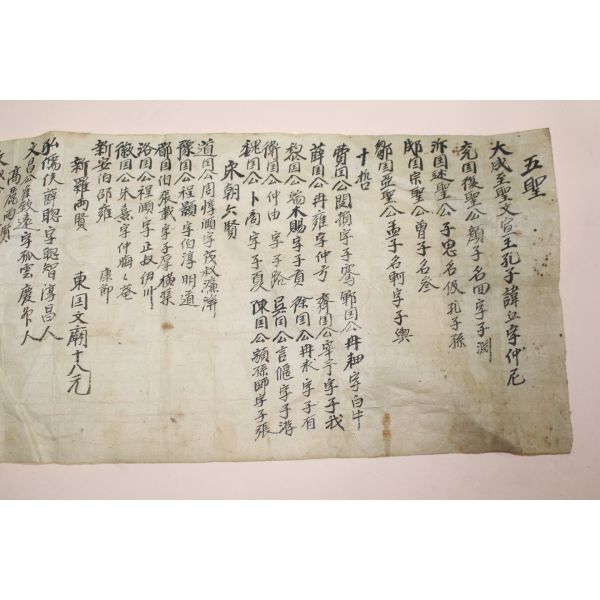 五聖
大成至聖文宣王孔子諱丘字仲尼
兗囯復聖公顔子名回字子淵
沂囯述聖公子思名伋孔子孫
郕囯宗聖公曾子名参
鄒囯亞聖公孟子名軻字子輿
十哲
費囯公閔損字子騫 鄆囯公冉耕字白牛
薛囯公冉雍字仲弓 齊囯公宰予字子我
黎囯公端木賜字子貢 徐囯公冉求字子有
衛囯公仲由字子路 吳囯公言偃字子游
魏囯公卜商字子夏 陳囯公顓孫師字子張
宋朝六賢
道囯公周惇頤字茂叔濂溪
豫囯公程顥字伯淳明道
郿囯伯張載字子厚横渠
洛囯公程頤字正叔伊川
徽囯公朱熹字仲晦晦菴
新安伯邵雍 康節
新羅両賢 東囯文廟十八元
弘儒侯薛聡字聡智淳昌人
文昌侯致遠字孤雲慶州人
高麗両賢